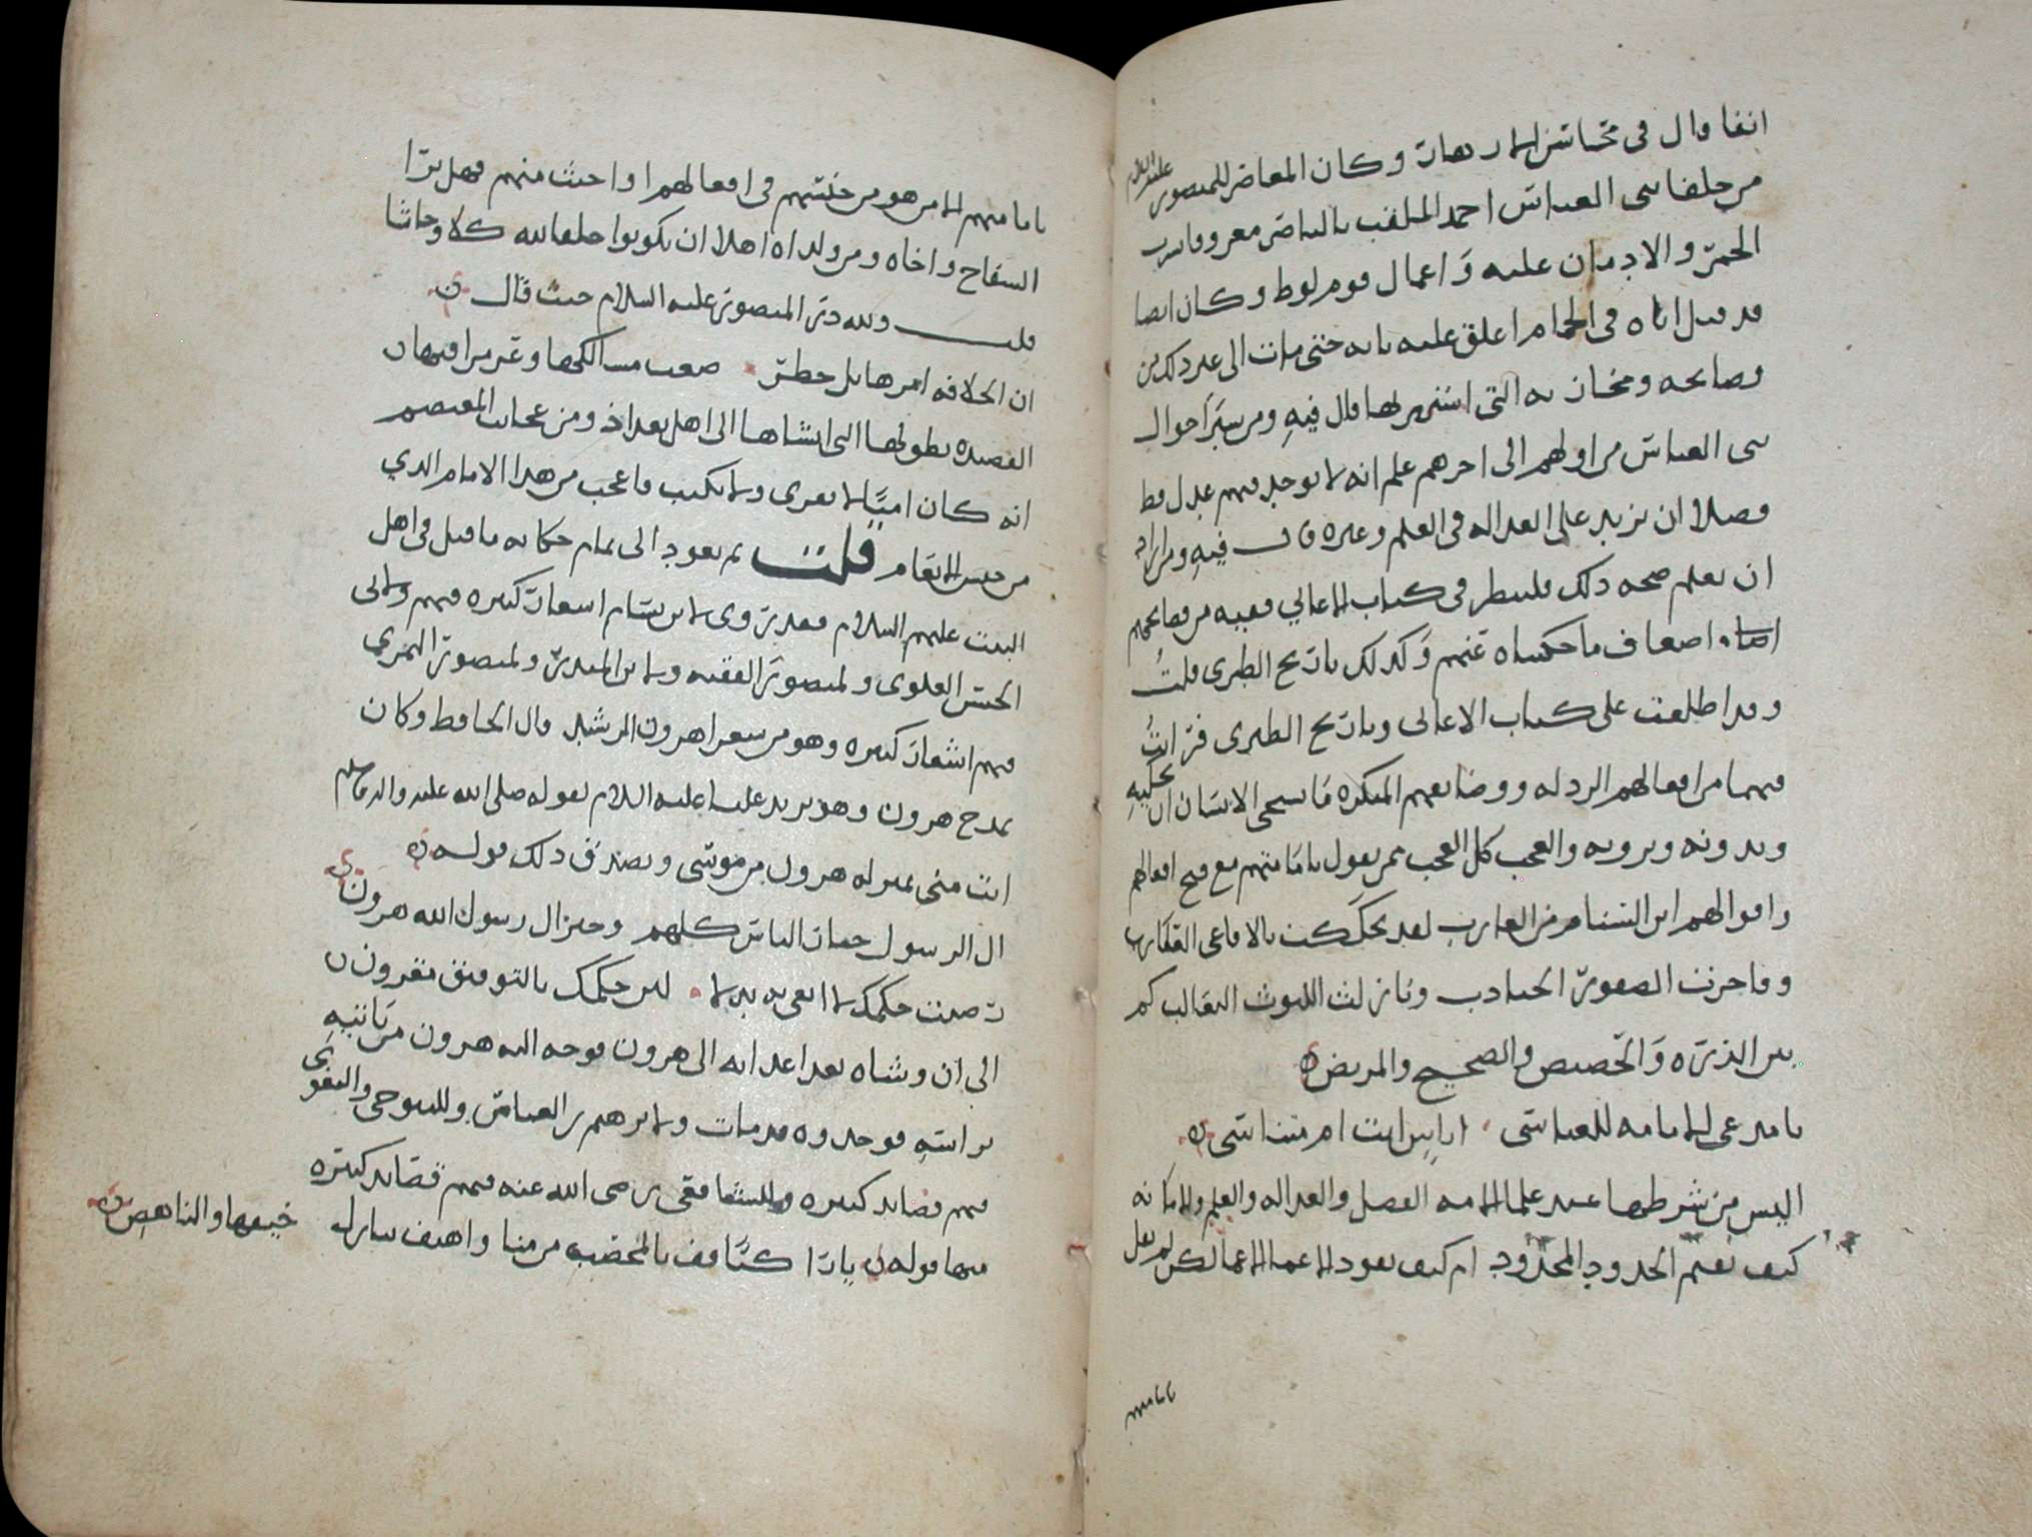 انفا وال فى محاسن الازهار وكان المعاصر للمنصور عليه السلام
من خلفا بنى العباس احمد الملقب بالناصر معروفا بشرب
الخمر والادمان عليه و اعمال قوم لوط وكان ايضا
قد قتل اباه فى الحمام اغلق عليه بابه حتى مات الى غير ذلك من
فضائحه ومخازيه التى اشتهر بها قال فيه ومن سبر احوال
بنى العباس من اولهم الى اخرهم علم انه لا يوجد فيهم عدل قط
فضلا ان يزيد على العداله فى العلم وغيره قال فيه ومن اراد
ان يعلم صحه ذلك فلينظر فى كتاب الاغاني ففيه من فضائحهم
اضعاف ما حكيناه عنهم وكذلك تاريخ الطبرى قلت
وقد اطلعت على كتاب الاغانى وتاريخ الطبرى فرايت
فيهما من افعالهم الرذله ووضائعهم المنكره ما يستحى الانسان ان يحكيه
ويدونه ويرويه والعجب كل العجب ممن يقول بامامتهم مع قبح افعالهم
واقوالهم اين السنام من الغارب لقد تحككت بالافاعى العقارب
وفاخرت الصقور الجنادب ونازلت الليوث الثعالب كم
بين الذروه والحضيض والصحيح والمريض
يا مدعى الامامه للعباسى اياس انت ام متناسى
اليس من شرطها عند علما الامه الفضل والعداله والعلم والامانه
كيف يقيم الحدود المحدود ام كيف يقود الاعما الاعما لكن لم يقل
بامامتهم
بامامتهم الا من هو من جنسهم فى افعالهم او اخبث منهم فهل ترا
السفاح واخاه ومن ولداه اهلا ان يكونوا خلفا لله كلا وحاشا
قلت ولله در المنصور عليه السلام حيث قال
ان الخلافه امرها بل خطر صعب مسالكها وعر مراقيها
القصيده بطولها التى انشاها الى اهل بغداد ومن عجائب المعتصم
انه كان اميا لا يقرى ولا يكتب فاعجب من هذا الامام الذي
من جنس الانعام قلت ثم نعود الى تمام حكايه ما قيل فى اهل
البيت عليهم السلام فقد روى لابن بسام اشعار كثيره فيهم ولابى
الحسن العلوى ولمنصور الفقيه ولابن المعتز ولمنصور النمري
فيهم اشعار كثيره وهو من شعرا هرون الرشيد قال الحافظ وكان
يمدح هرون وهو يريد عليا عليه السلام لقوله صلى الله عليه واله وسلم
انت منى بمنزله هرون من موسى ويصدق ذلك قوله
ال الرسول خيار الناس كلهم وخير ال رسول الله هرون
رضيت حكمك لا ابغى به بدلا لان حكمك بالتوفيق مقرون
الى ان وشاه بعد اعدائه الى هرون فوجه اليه هرون من ياتيه
براسه فوجدوه قد مات ولابرهيم بن العباس وللبوحى واليعقوبى
فيهم قصائد كثيره وللشافعى رضى الله عنه فيهم قصائد كثيره
منها قوله يا راكبا قف بالمحصب من منا واهتف بنازل خيفها والناهض